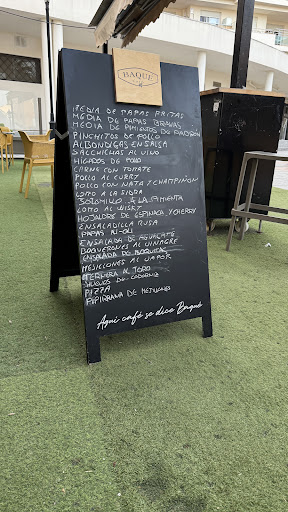 BAQUÉ
MEDIA DE PAPAS FRITAS
MEDIA DE PAPAS BRAVAS
MEDIA DE PIMIENTOS DE PADRÓN
PINCHITOS DE POLLO
ALBONDIGAS EN SALSA
SALCHICHAS AL VINO
HIGADOS DE POLLO
CARNE CON TOMATE
POLLO AL CURRY
POLLO CON NATA Y CHAMPIÑON
LOMO A LA SIDRA
SOLOMILLO A LA PIMIENTA
LOMO AL WISKY
HOJALDRE DE ESPINACA Y CHERRY
ENSALADILLA RUSA
PAPAS ALI-OLI
ENSALADA DE AGUACATE
BOQUERONES AL VINAGRE
ENSALADA DE
MEJILLONES AL VAPOR
AL TORO
HUEVOS DE CODORNIZ
PIZZA
PIPIRRANA DE MEJILLONES
Aquí café se dice Baqué